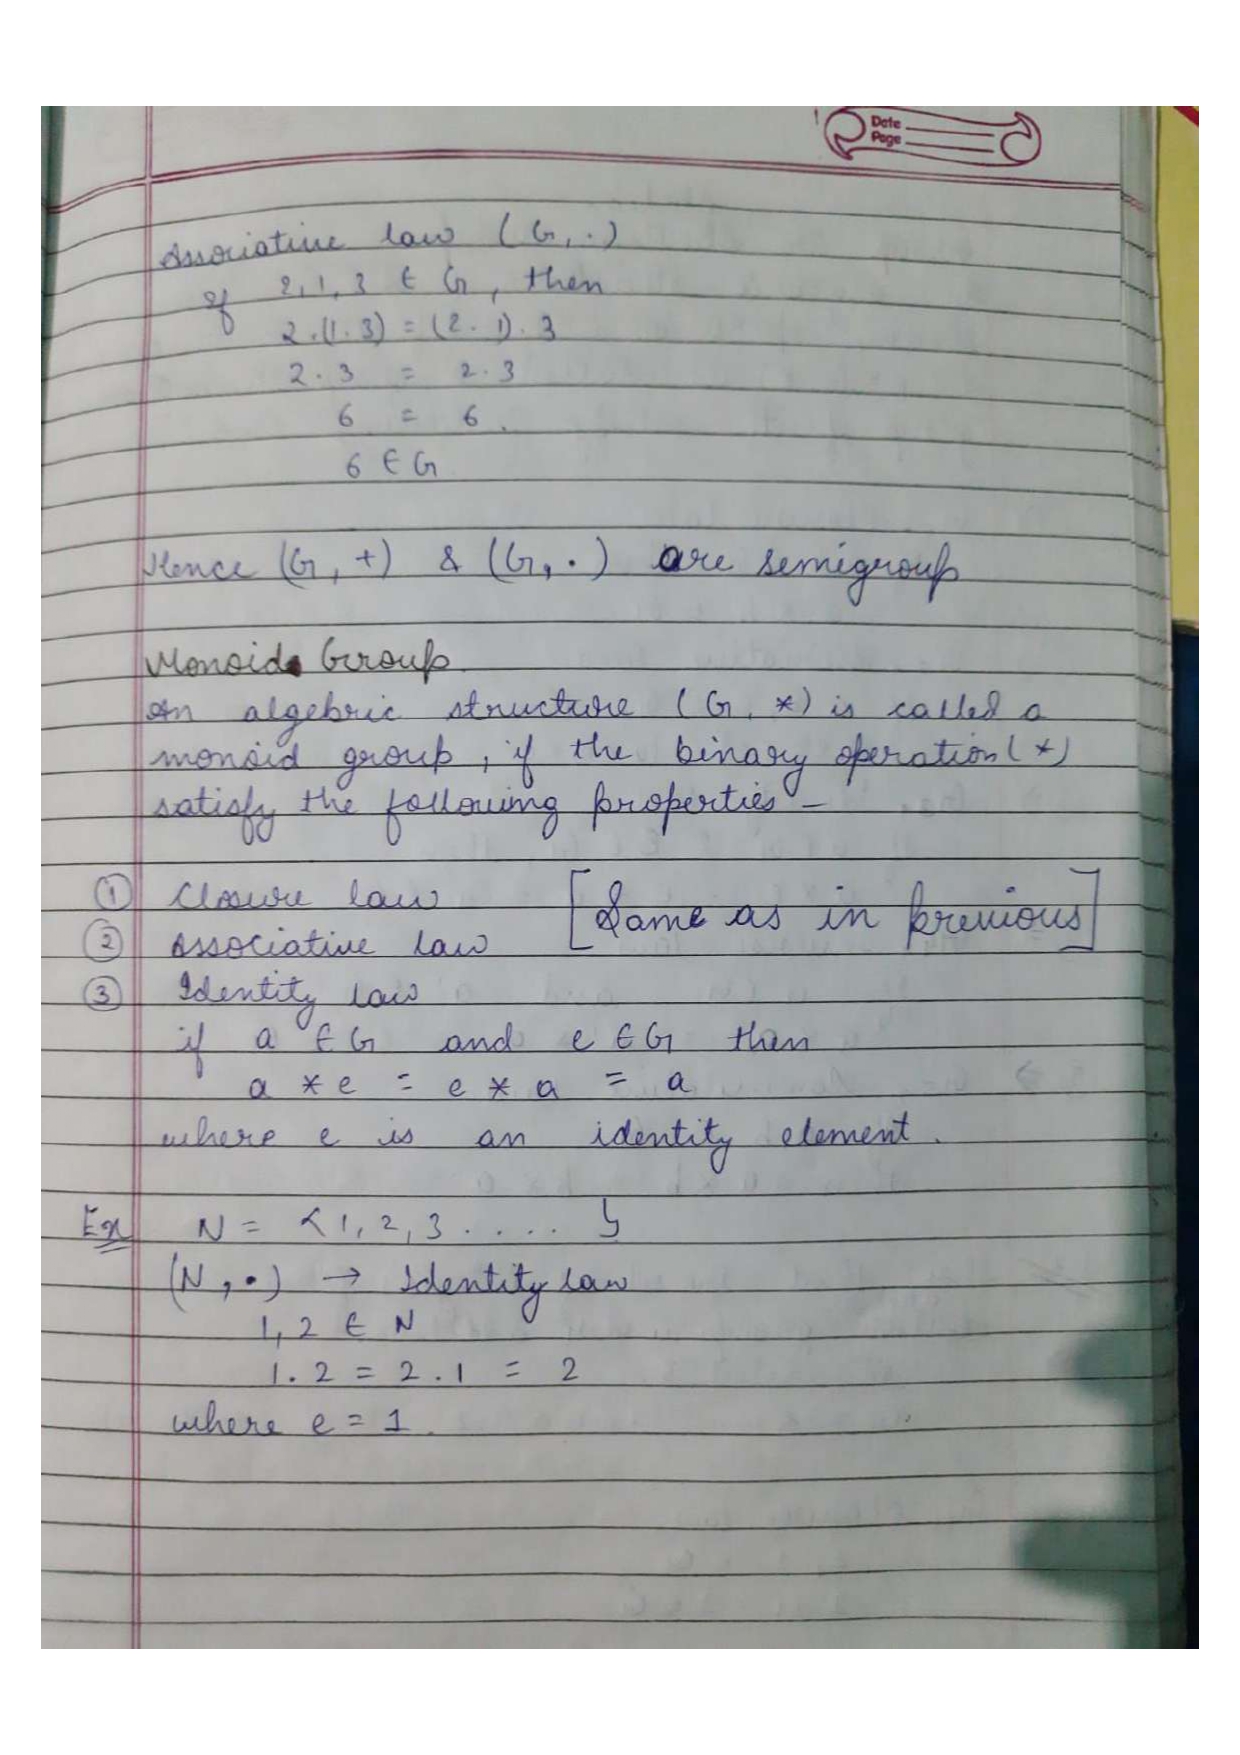 Date
Page
Associative law (G, .)
If 2, 1, 3 ∈ G, then
2.(1.3) = (2.1).3
2.3 = 2.3
6 = 6.
6 ∈ G
Hence (G, +) & (G, .) are semigroup
Monoid Group
An algebric structure (G, *) is called a
monoid group, if the binary operation (*)
satisfy the following properties -
① Closure law [Same as in previous]
② Associative law
③ Identity law
if a ∈ G and e ∈ G then
a * e = e * a = a
where e is an identity element.
Ex N = {1, 2, 3 . . . . }
(N, .) → Identity law
1, 2 ∈ N
1.2 = 2.1 = 2
where e = 1.